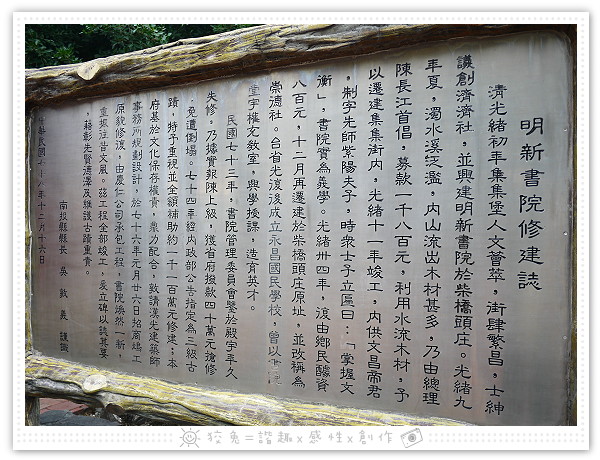 明新書院修建誌
清光緒初年集集堡人文薈萃，街肆繁昌，士紳
議創濟濟社，並興建明新書院於柴橋頭庄。光緒九
年夏，濁水溪泛濫，內山流出木材甚多，乃由總理
陳長江首倡，募款一千八百元，利用水流木材，予
以遷建集集街內，光緒十一年竣工，內供文昌帝君
，制字先師紫陽夫子，時衆士子立匾曰：「掌握文
衡」，書院實為義學。光緒卅四年，復由鄉民醵資
八百元，十二月再遷建於柴橋頭庄原址，並改稱為
崇德社。台省光復後成立永昌國民學校，曾以
堂宇權充教室，興學授課，造育英才。
民國七十三年，書院管理委員會鑒於殿宇年久
失修，乃據實報陳上級，獲省府撥款四十萬元搶修
，免遭倒塌。七十四年經內政部公告指定為三級古
蹟，特予重視並全額補助約一千一百萬元修建；本
府基於文化保存權責，鼎力配合，敦請漢光建築師
事務所規劃設計，於七十六年元月廿六日招商竣工
原貌修復，由慶仁公司承包工程，書院煥然一新，
重振往昔文風。茲工程全部竣工，爰立碑以誌其要
，藉彰先賢德澤及維護古蹟重責。
南投縣縣長 吳敦義 謹識
中華民國七十八年十二月十六日
狡兔=諧趣x感性x創作